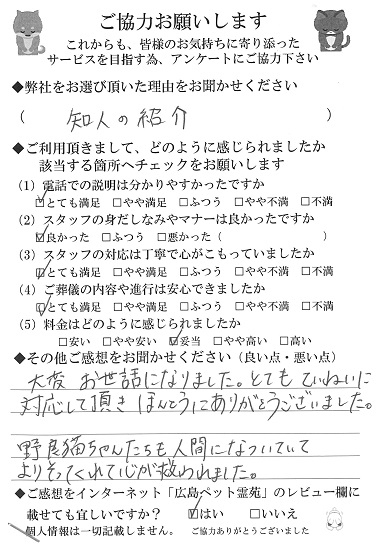 ご協力お願いします
これからも、皆様のお気持ちに寄り添った
サービスを目指す為、アンケートにご協力下さい
◆弊社をお選び頂いた理由をお聞かせください
( 知人の紹介 )
◆ご利用頂きまして、どのように感じられましたか
該当する箇所へチェックをお願いします
(1) 電話での説明は分かりやすかったですか
☑とても満足 □やや満足 □ふつう □やや不満 □不満
(2) スタッフの身だしなみやマナーは良かったですか
☑良かった □ふつう □悪かった ( )
(3) スタッフの対応は丁寧で心がこもっていましたか
☑とても満足 □やや満足 □ふつう □やや不満 □不満
(4) ご葬儀の内容や進行は安心できましたか
☑とても満足 □やや満足 □ふつう □やや不満 □不満
(5) 料金はどのように感じられましたか
□安い □やや安い ☑妥当 □やや高い □高い
◆その他ご感想をお聞かせください (良い点・悪い点)
大変 お世話になりました。とても ていねいに
対応して頂き ほんとうにありがとうございました。
野良猫ちゃんたちも人間になついていて
よりそってくれて心が救われました。
◆ご感想をインターネット「広島ペット霊苑」のレビュー欄に
載せても宜しいですか？ ☑はい □いいえ
個人情報は一切記載しません。 ご協力ありがとうございました